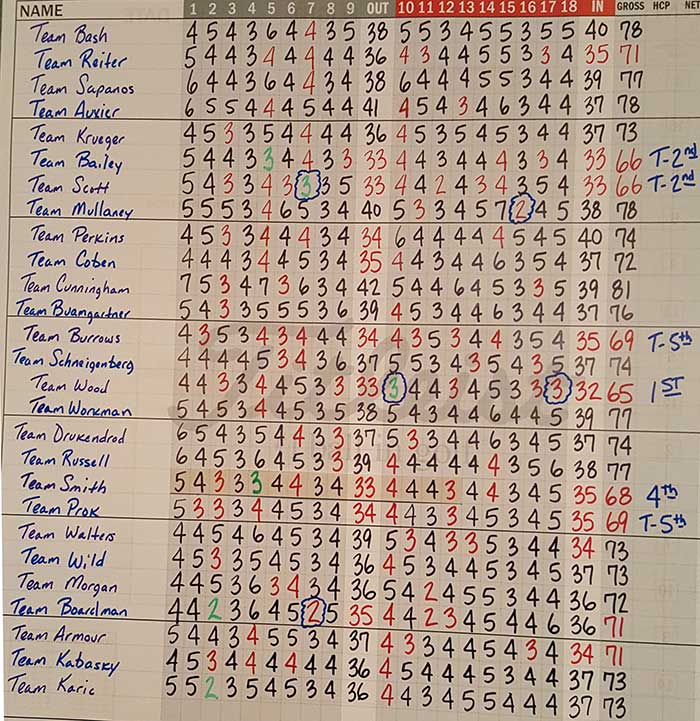 NAME 1 2 3 4 5 6 7 8 9 OUT 10 11 12 13 14 15 16 17 18 IN GROSS HCP NET
Team Bash 4 5 4 3 6 4 4 3 5 38 5 5 3 4 5 5 3 5 5 40 78
Team Reiter 5 4 4 3 4 4 4 4 4 36 4 3 4 4 5 5 3 3 4 35 71
Team Sapanos 6 4 4 3 6 4 4 3 4 38 6 4 4 4 5 5 3 4 4 39 77
Team Auxier 6 5 5 4 4 4 5 4 4 41 4 5 4 3 4 6 3 4 4 37 78
Team Krueger 4 5 3 3 5 4 4 4 4 36 4 5 3 5 4 5 3 4 4 37 73
Team Bailey 5 4 4 3 3 4 4 3 3 33 4 4 3 4 4 4 3 3 4 33 66 T-2nd
Team Scott 5 4 3 3 4 3 3 3 5 33 4 4 2 4 3 4 3 5 4 33 66 T-2nd
Team Mullaney 5 5 5 3 4 6 5 3 4 40 5 3 3 4 5 7 2 4 5 38 78
Team Perkins 4 5 3 3 4 4 4 3 4 34 6 4 4 4 4 4 5 4 5 40 74
Team Coben 4 4 4 3 4 4 5 3 4 35 4 4 3 4 4 6 3 5 4 37 72
Team Cunningham 7 5 3 4 7 3 6 3 4 42 5 4 4 6 4 5 3 3 5 39 81
Team Bumgartner 5 4 3 3 5 5 5 3 6 39 4 5 3 4 4 6 3 4 4 37 76
Team Burrows 4 3 5 3 4 3 4 4 4 34 4 3 5 3 4 4 3 5 4 35 69 T-5th
Team Schneigenberg 4 4 4 4 5 3 4 3 6 37 5 5 3 4 3 5 4 3 5 37 74
Team Wood 4 4 3 3 4 4 5 3 3 33 3 4 4 3 4 5 3 3 3 32 65 1ST
Team Workman 5 4 5 3 4 4 5 3 5 38 5 4 3 4 4 6 4 4 5 39 77
Team Drukendrod 6 5 4 3 5 4 4 3 3 37 5 3 3 4 4 6 3 4 5 37 74
Team Russell 6 4 5 3 6 4 5 3 3 39 4 4 4 4 4 4 3 5 6 38 77
Team Smith 5 4 3 3 3 4 4 3 4 33 4 4 4 3 4 4 3 4 5 35 68 4th
Team Prok 5 3 3 3 4 4 5 3 4 34 4 4 3 3 4 5 3 4 5 35 69 T-5th
Team Walters 4 4 5 4 6 4 5 3 4 39 5 3 4 3 3 5 3 4 4 34 73
Team Wild 4 5 3 3 5 4 5 3 4 36 4 5 3 4 4 5 3 4 5 37 73
Team Morgan 4 4 5 3 6 3 4 3 4 36 5 4 2 4 5 5 3 4 4 36 72
Team Boardman 4 4 2 3 6 4 5 2 5 35 4 4 2 3 4 5 4 4 6 36 71
Team Armour 5 4 4 3 4 5 5 3 4 37 4 3 3 4 4 5 4 3 4 34 71
Team Kabasky 4 5 3 4 4 4 4 4 4 36 4 5 4 4 4 5 3 4 4 37 73
Team Karic 5 5 2 3 5 4 5 3 4 36 4 4 3 4 5 5 4 4 4 37 73